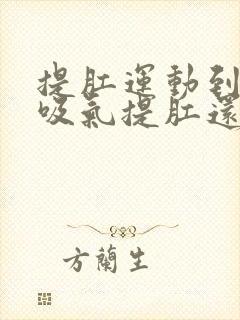 提肛運動到
吸氣提肛還
方蘭生